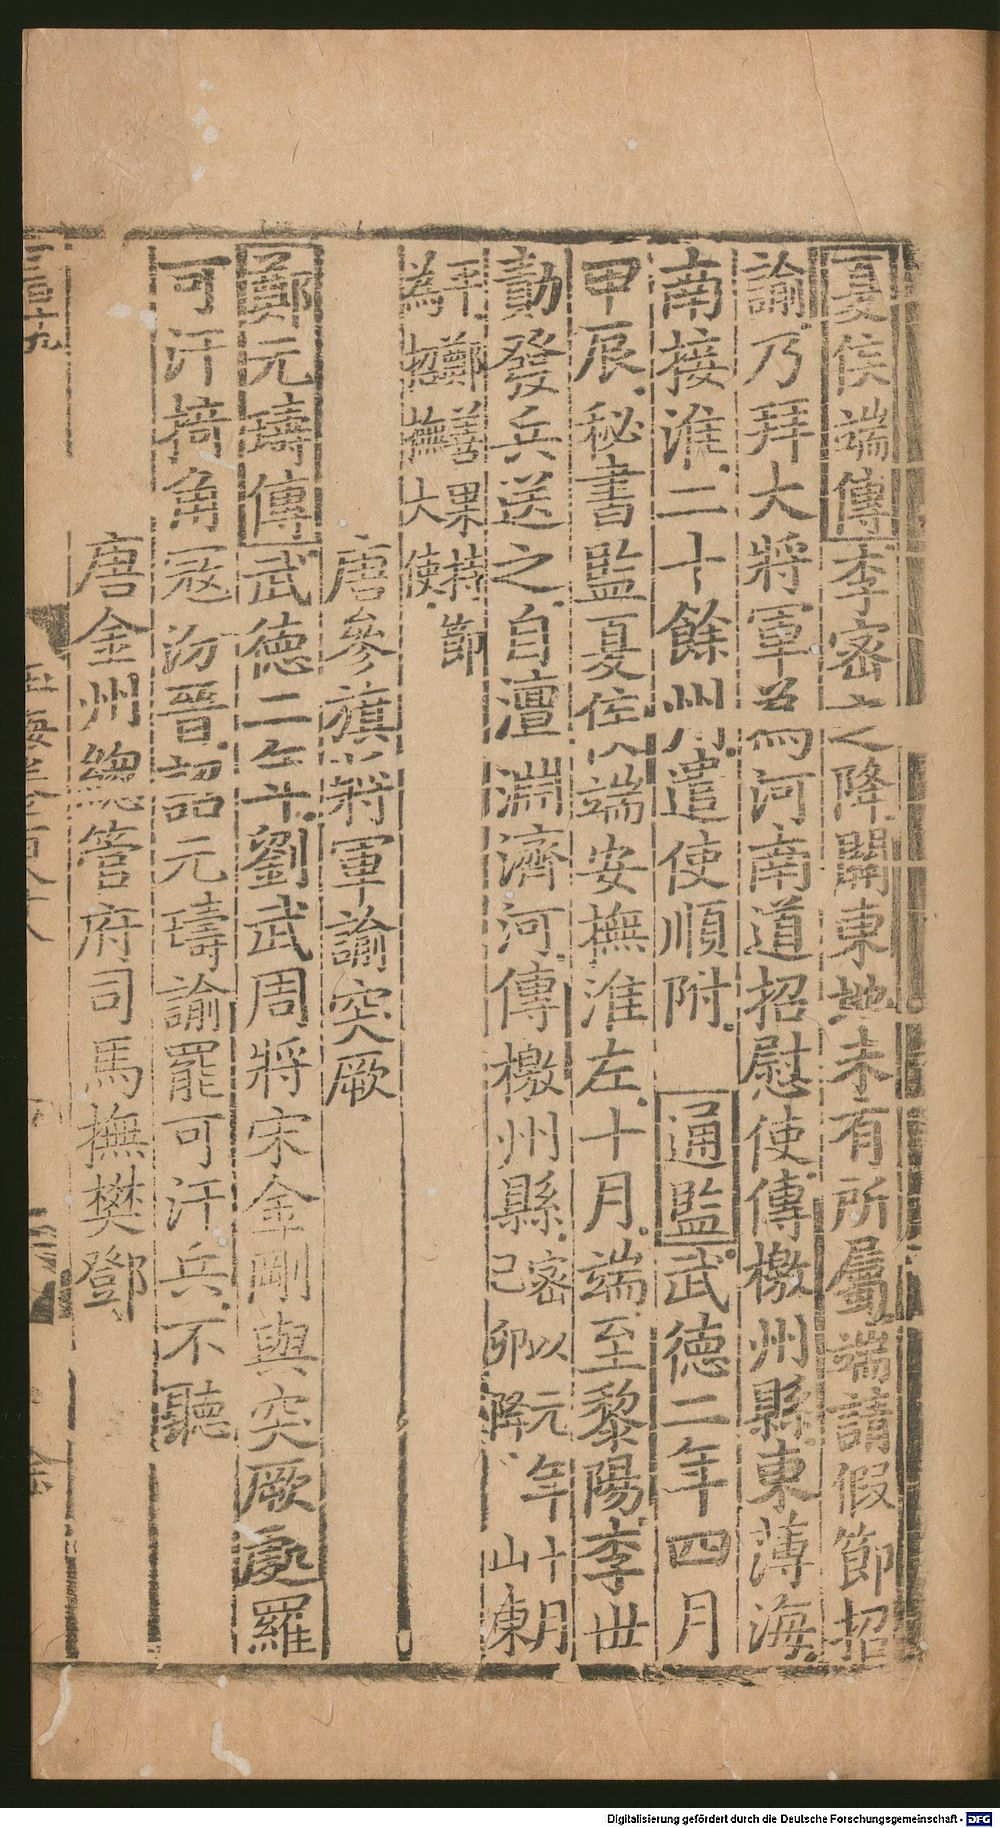 夏侯端傳李密之降關東地未有所屬端請假節招
諭乃拜大將軍為河南道招慰使傳檄州縣東薄海
南接淮二十餘州遣使順附通監武德二年四月
甲辰秘書監夏侯端安撫淮左十月端至黎陽李世
勣發兵送之自澶淵濟河傳檄州縣密以元年十月
己卯降山東
平鄭善果持節
為招撫大使
唐參旗將軍諭突厥
鄭元璹傳武德二年劉武周將宋金剛與突厥處羅
可汗掎角冦汾晉詔元璹諭罷可汗兵不聽
唐金州總管府司馬撫樊鄧
Digitalisierung gefördert durch die Deutsche Forschungsgemeinschaft - DFG